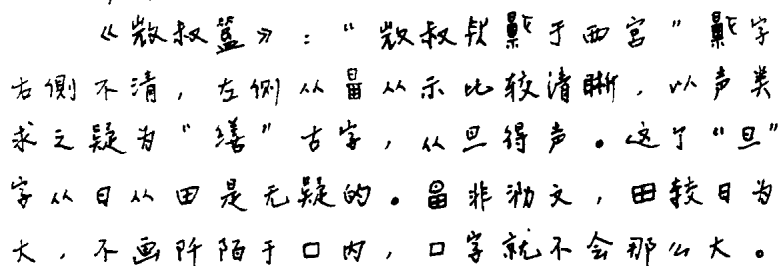 《𢼸叔簋》："𢼸叔 于西宫" 字
右侧不清，左侧从畐从示比较清晰，以声类
求之疑为"缮"古字，从旦得声。这个"旦"
字从日从田是无疑的。畐非泐文，田较日为
大，不画阡陌于口内，口字就不会那么大。